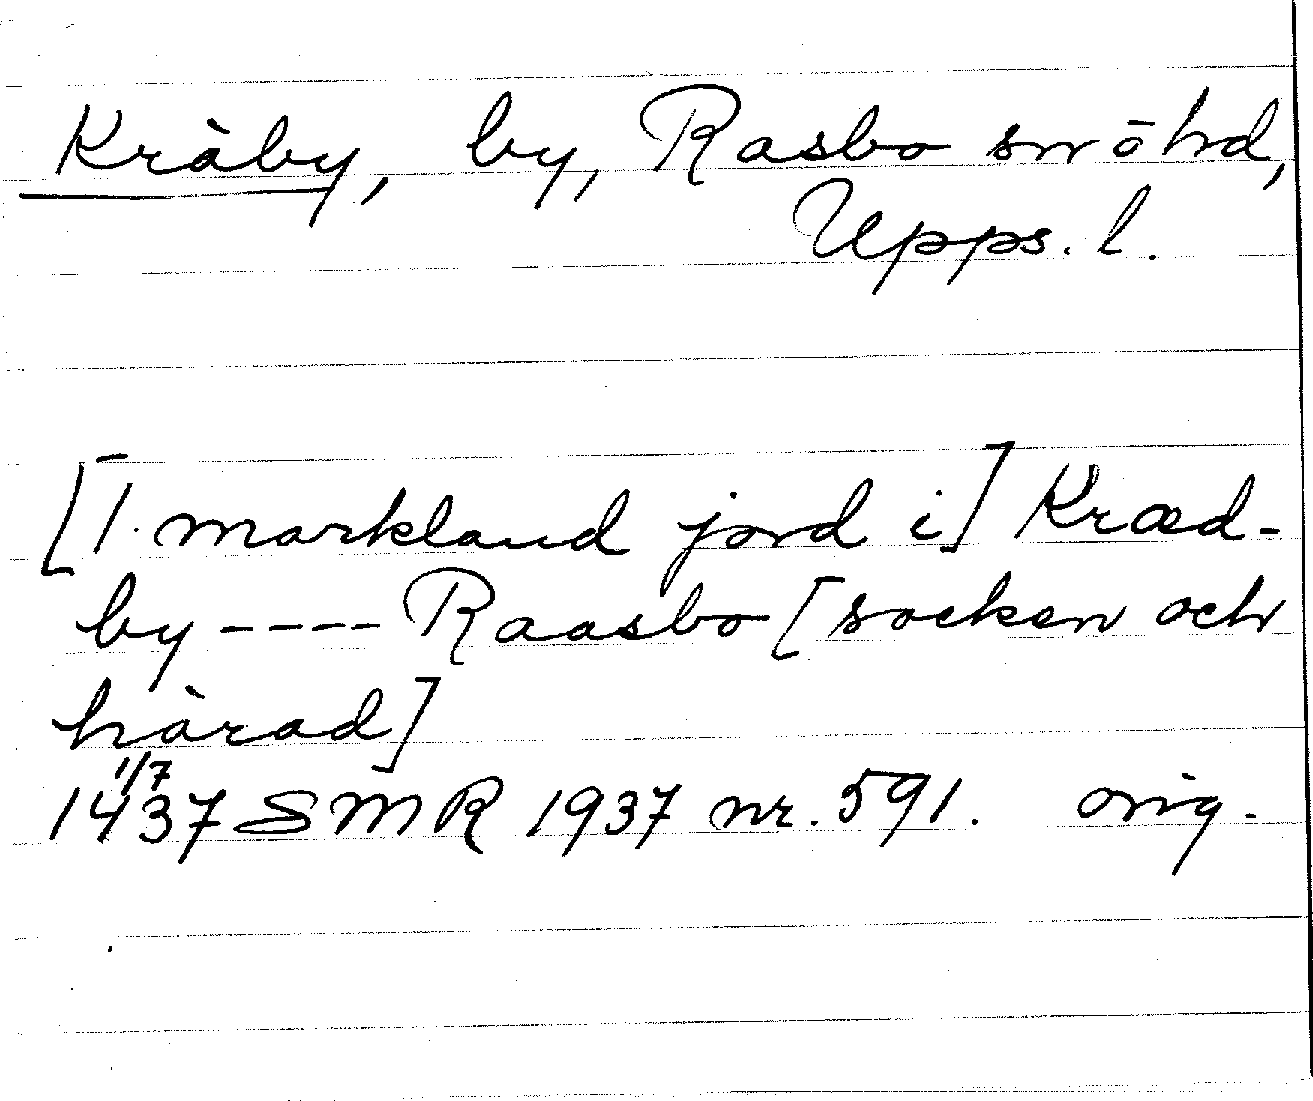 Kräby, by, Rasbo sn o hd,
Upps. l.
[1 markland jord i] Kræd-
by ---- Raasbo [socken och
härad]
1/7
1437 SMR 1937 nr. 591. orig.